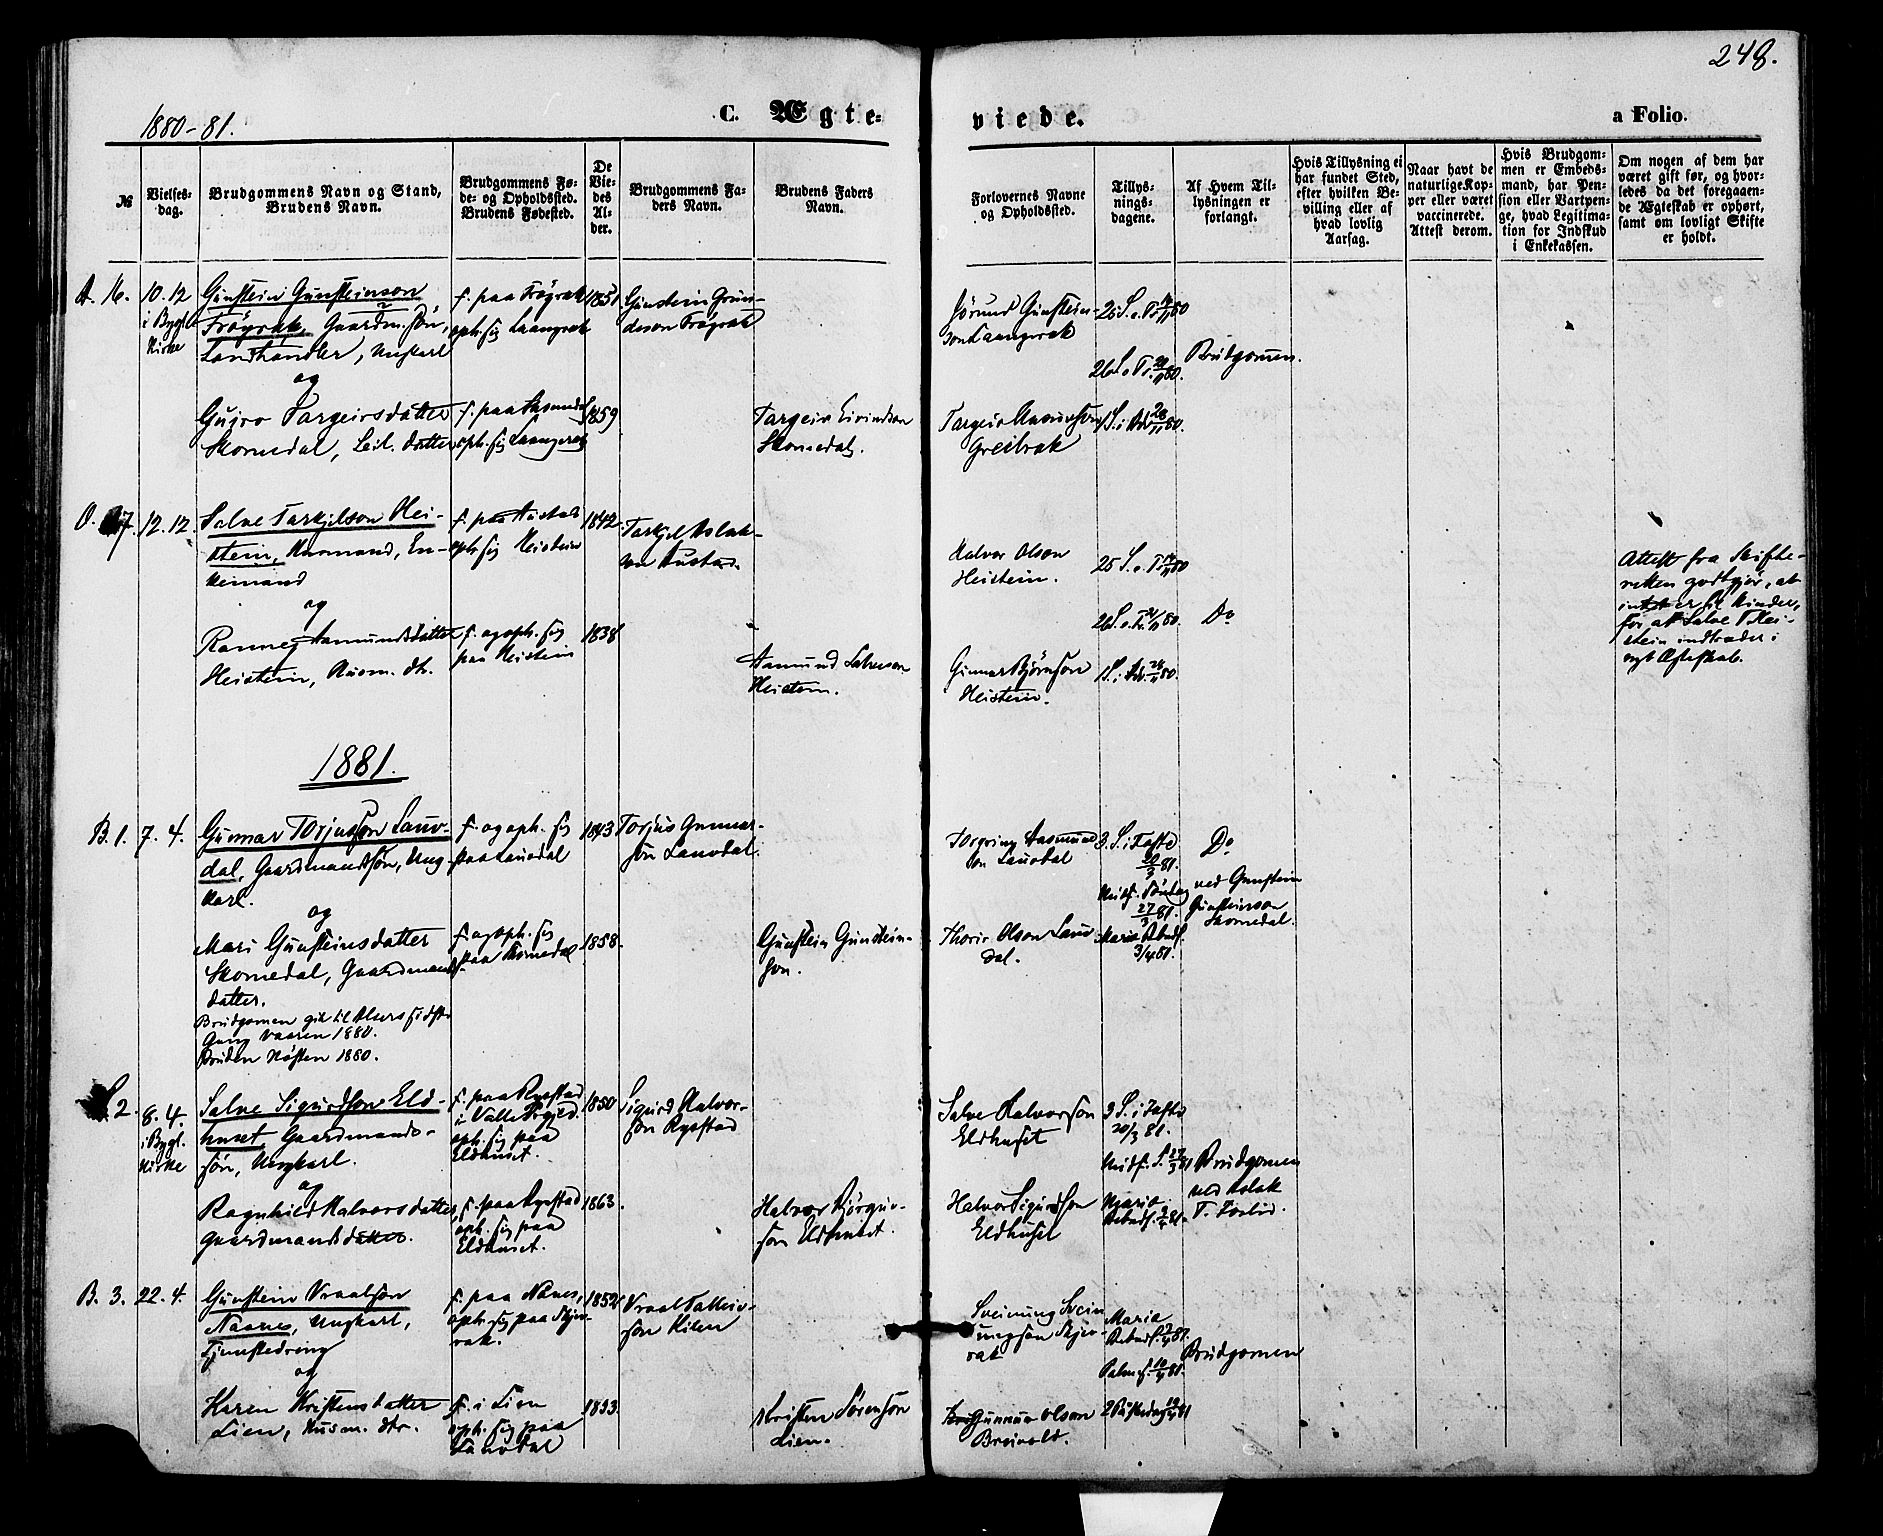 248.
1880-81.
C. Ægte-
viede.
a Folio.
№
Vielses-
dag.
Brudgommens Navn og Stand,
Brudens Navn.
Brudgommens Fø-
de- og Opholdssted.
Brudens Fødested.
De
Vie-
des
Al-
der.
Brudgommens Fa-
ders Navn.
Brudens Faders
Navn.
Forlovernes Navne
og Opholdssted.
Tillys-
nings-
dagene.
Af Hvem Til-
lysningen er
forlangt.
Hvis Tillysning ei
har fundet Sted,
efter hvilken Be-
villing eller af
hvad lovlig
Aarsag.
Naar havt de
naturlige Kop-
per eller været
vaccinerede.
Attest derom.
Hvis Brudgom-
men er Embeds-
mand, har Pen-
sion eller Vartpen-
ge, hvad Legitima-
tion for Indskud
i Enkekassen.
Om nogen af dem har
været gift før, og hvor-
ledes da det foregaaen-
de Ægteskab er ophørt,
samt om lovligt Skifte
er holdt.
A. 16.
10.12
i Bygl.
Kirke
Gunstein Gunsteinson
Frøyrak, Gaardm. søn,
Landhandler, Ungkarl
og
Gujro Targeirsdatter
Skomedal, Leil. datter
f. paa Frøyrak
oph. sig Laangerak
f. paa
oph. sig Laangerak
1851
1859
Gunstein Gun-
derson Frøyrak
Targeir Eivindson
Skomedal.
Jørund Gunstein-
son Laangerak
Targeir Aasmundson
Greibrok
25 S. e. T. 14/11 80
26 S. e. Tr. 21/11 80.
1 S. i Adv. 28/11 80.
Brudgomen.
O. 17.
12.12.
Salve Tarkjelson Hei-
stein, Husmand, En-
kemand
og
Ranneg Aamundsdatter
Heistein, Husm. dtr.
f. paa Austad
oph. sig Heistein
f. og oph. sig
paa Heistein
1842
1838
Tarkjel Aslak-
son Austad.
Aamund Salveson
Heistein.
Halvor Olson
Heistein.
Gunnar Bjørnson
Heistein.
25 S. e. T. 14/11 80
26 S. e. Tr. 21/11 80.
1 S. i Adv. 28/11 80.
Do
Attest fra Skifte-
retten godtgjør, at
intet er til Hinder
for at Salve T. Hei-
stein indtræder i
nyt Ægteskab.
1881.
B. 1.
7. 4.
Gunnar Torjusson Lauv-
dal, Gaardmandssøn, Ung-
karl.
og
Mari Gunsteinsdatter
Skomedal, Gaardmands-
datter.
Brudgomen gik til Alters sidste
Gang Vaaren 1880.
Bruden Høsten 1880.
f. og oph. sig
paa Lauvdal
f. og oph. sig
paa Skomedal
1843
1858.
Torjus Gunnar-
søn Lauvdal.
Gunstein Gunstein-
son.
Aasmund
son Lauvdal
Thorir Olson Lauv-
dal.
3. S. i Faste
20/3 81.
Midf. Søndag
27/3 81.
Maria Bebud.
3/4 81.
Do
ved Gunstein
Gunsteinson
Skomedal.
2.
8. 4.
i Bygl.
Kirke
Salve Sigurdson Eld-
huset Gaardmands-
søn, Ungkarl.
og
Ragnhild Halvorsdatter,
Gaardmandsdatter.
f. paa Rysstad
i Valle Prgjld.
oph. sig paa
Eldhuset.
f. paa Rysstad
oph. sig paa
Eldhuset.
1850
1863.
Sigurd Halvor-
søn Rysstad
Halvor Bjørgu-
son Eldhuset.
Salve Halvorson
Eldhuset
Halvor Sigurdson
Eldhuset
3 S. i Faste
20/3 81.
Midf. S. 27/3 81
Maria
Bebud. 3/4 81.
Brudgomen
ved Aslak
T.
B. 3.
22. 4.
Gunstein Vraalson
Naanes, Ungkarl,
Tjenstedreng
og
Karen Kristensdatter
Lien, Husm. dtr.
f. paa Nanes,
oph. sig paa Skjev-
rak.
f. i Lien
oph. sig paa
Lauvdal
1852
1853
Vraal Talleiv-
søn Kilen
Kristen Sørenson
Lien.
Sveinung Svein-
ungson Skjev-
rak
Gunnar Olson
Breivold.
Maria
Bebud. 3/4 81.
Palmes. 10/4 81.
2 Paaskedag 18/4 81
Brudgomen